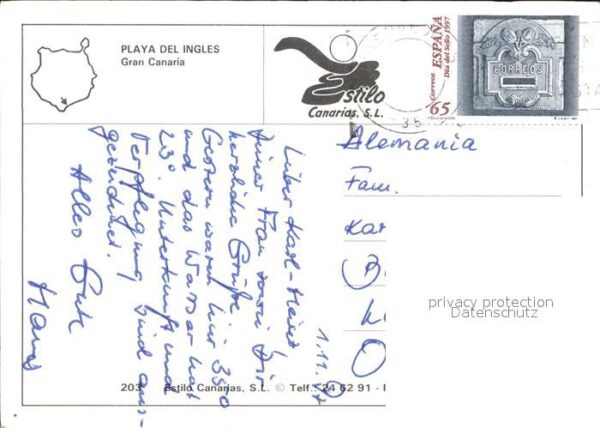 PLAYA DEL INGLES
Gran Canaria
Estilo
Canarias, S.L.
Correos ESPAÑA
Día del Sello 1997
65
CORREOS
Alemania
Fam.
Lieber Karl-Heinz!
Deiner Frau sowie Dir
herzliche Grüße.
Gestern waren hier 35°
und das Wasser hat
23°. Unterkunft und
Verpflegung sind aus-
gezeichnet.
Alles Gute
Hans
1.11.97
privacy protection
Datenschutz
203 Estilo Canarias, S.L. © Telf. 24 62 91 -